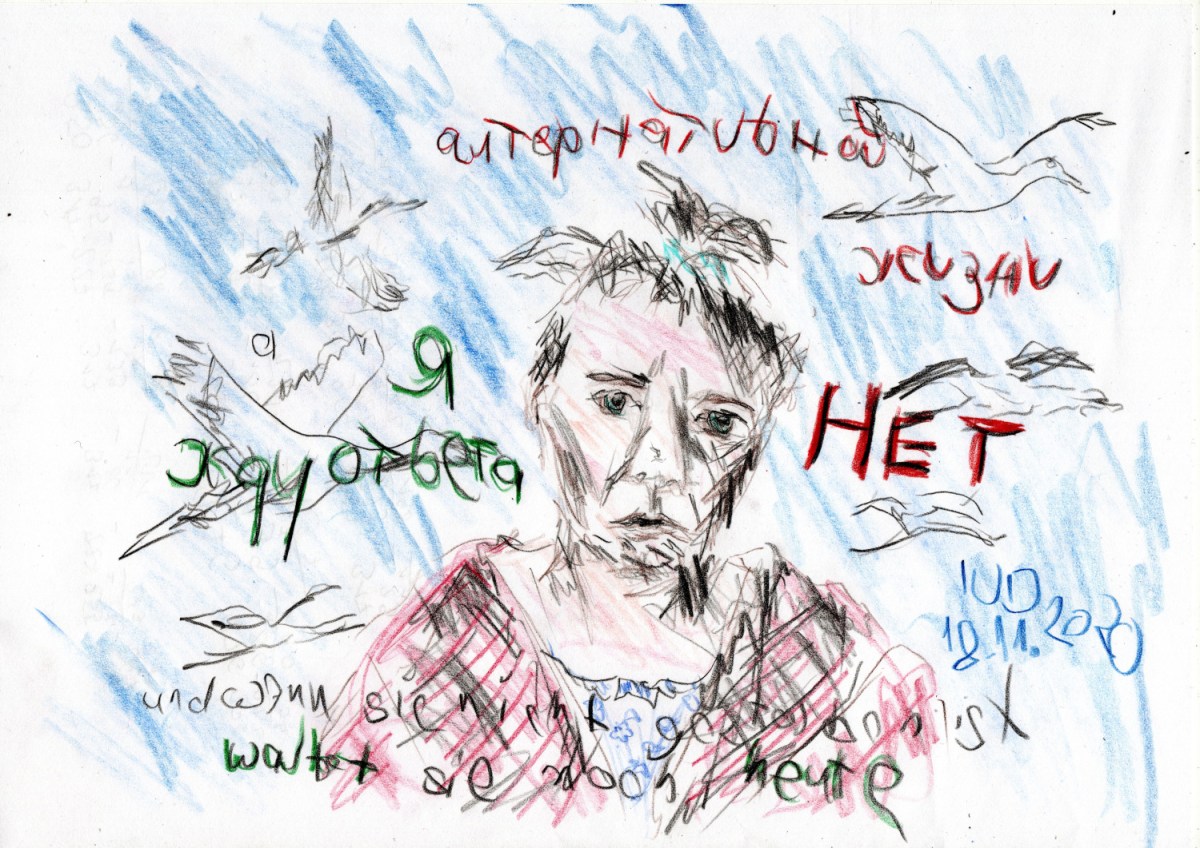 алтернативной
жизни
НЕТ
Я
жду ответа
IUD
18.11.2020
und wenn sie nicht gestorben ist
wartet sie noch heute